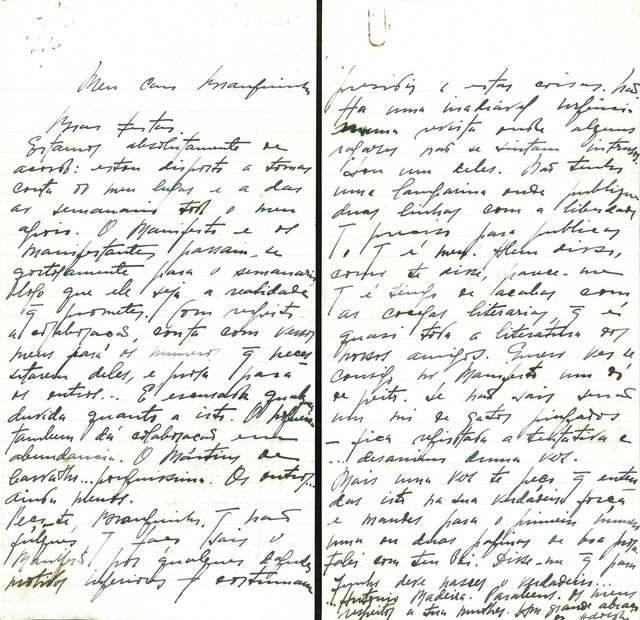 Meu caro Branquinho
Boas festas
Estamos absolutamente de
acordo: estou disposto a tomar
conta do meu lugar e a dar
ao semanario todo o meu
apoio. O Manifesto e os
Manifestantes passam-se
gostosamente para o semanario
logo que ele seja a realidade
q prometes. Com respeito
a colaboração, conta com versos
meus para os numeros q neces
sitarem deles, e prosa para
os outros... É escusada qualquer
duvida quanto a isto. O
tambem dá colaboração em
abundancia. O Martins de
Carvalho... pouquissima. Os outros...
ainda menos.
Peço-te Branquinho, q não
julgues q faço sair o
Manifesto por quaisquer
motivos inferiores q costumam
presidir a estas coisas. Não
Ha uma inadiavel urgência
numa revista onde alguns
rapazes não se sintam
Sou um deles. Não tenho
uma lamparina onde publique
duas linhas com a liberdade
q preciso para publicar
o q é meu. Alem disso,
como te disse, parece-me
q é tempo de acabar com
as cocegas literarias, q é
quasi toda a literatura dos
nossos amigos. Quero ver se
consigo no Manifesto um
de peito. Se não sair senão
um mi de gatos pingados
- fica registada a tentativa e
... desanimo duma vez.
Mais uma vez te peço q enten
das isto na sua verdadeira força
e mandes para o primeiro numero
uma ou duas paginas de boa prosa
Falei com teu Disse-me q para
Junho deve nascer o verdadeiro...
...Antonio Madeira. Parabens. Os meus
respeitos a tua mulher. Um grande abraço
do